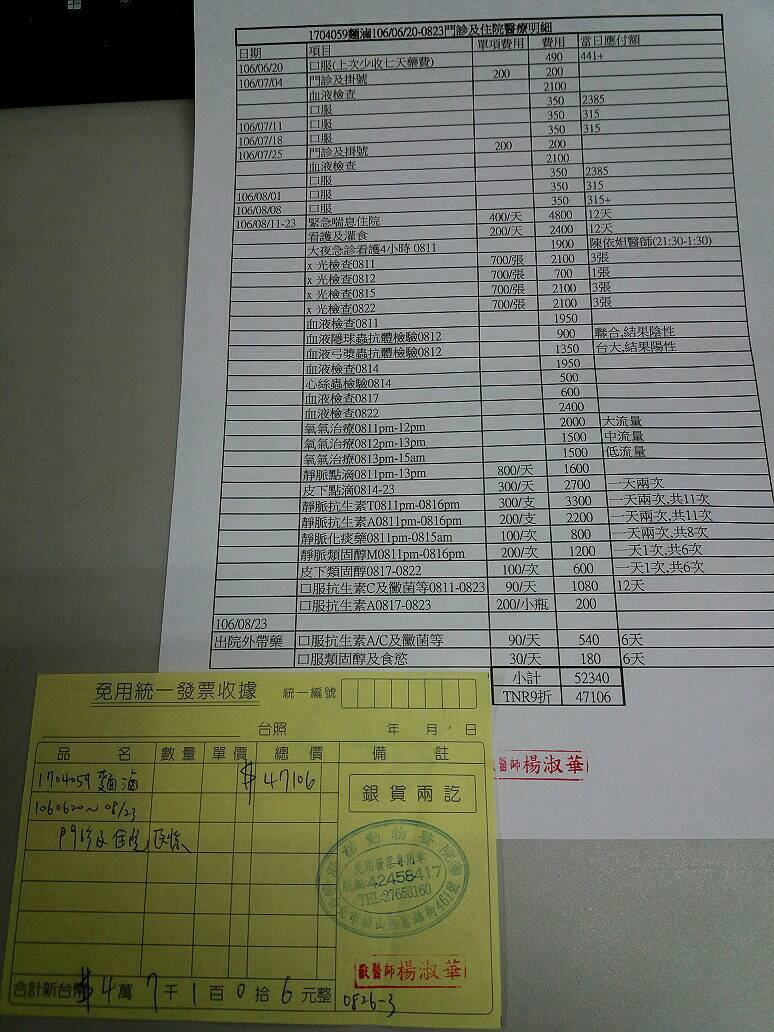 1704059麵滷106/06/20-0823門診及住院醫療明細
日期 項目 單項費用 費用 當日應付額
106/06/20 口服(上次少收七天藥費) 490 441+
106/07/04 門診及掛號 200 200
血液檢查 2100
口服 350 2385
106/07/11 口服 350 315
106/07/18 口服 350 315
106/07/25 門診及掛號 200 200
血液檢查 2100
口服 350 2385
106/08/01 口服 350 315
106/08/08 口服 350 315+
106/08/11-23 緊急喘息住院 400/天 4800 12天
看護及灌食 200/天 2400 12天
大夜急診看護4小時 0811 1900 陳依妲醫師(21:30-1:30)
x 光檢查0811 700/張 2100 3張
x 光檢查0812 700/張 700 1張
x 光檢查0815 700/張 2100 3張
x 光檢查0822 700/張 2100 3張
血液檢查0811 1950
血液隱球蟲抗體檢驗0812 900 聯合,結果陰性
血液弓漿蟲抗體檢驗0812 1350 台大,結果陽性
血液檢查0814 1950
心絲蟲檢驗0814 500
血液檢查0817 600
血液檢查0822 2400
氧氣治療0811pm-12pm 2000 大流量
氧氣治療0812pm-13pm 1500 中流量
氧氣治療0813pm-15am 1500 低流量
靜脈點滴0811pm-13pm 800/天 1600
皮下點滴0814-23 300/天 2700 一天兩次
靜脈抗生素T0811pm-0816pm 300/支 3300 一天兩次,共11次
靜脈抗生素A0811pm-0816pm 200/支 2200 一天兩次,共11次
靜脈化痰藥0811pm-0815am 100/次 800 一天兩次,共8次
靜脈類固醇M0811pm-0816pm 200/次 1200 一天1次,共6次
皮下類固醇0817-0822 100/次 600 一天1次,共6次
口服抗生素C及黴菌等0811-0823 90/天 1080 12天
口服抗生素A0817-0823 200/小瓶 200
106/08/23
出院外帶藥 口服抗生素A/C及黴菌等 90/天 540 6天
口服類固醇及食慾 30/天 180 6天
小計 52340
TNR9折 47106
醫師楊淑華
免用統一發票收據 統一編號
台照 年 月 日
品名 數量 單價 總價 備註
1704059 麵滷 $47106
1060620~08/23
門診及住院医療
銀貨兩訖
動物醫院
免用發票專用章
統編:42458417
TEL:27653160
台北市松山區富錦街461號
獸醫師楊淑華
合計新台幣 $4萬7千1百0拾6元整 0826-3